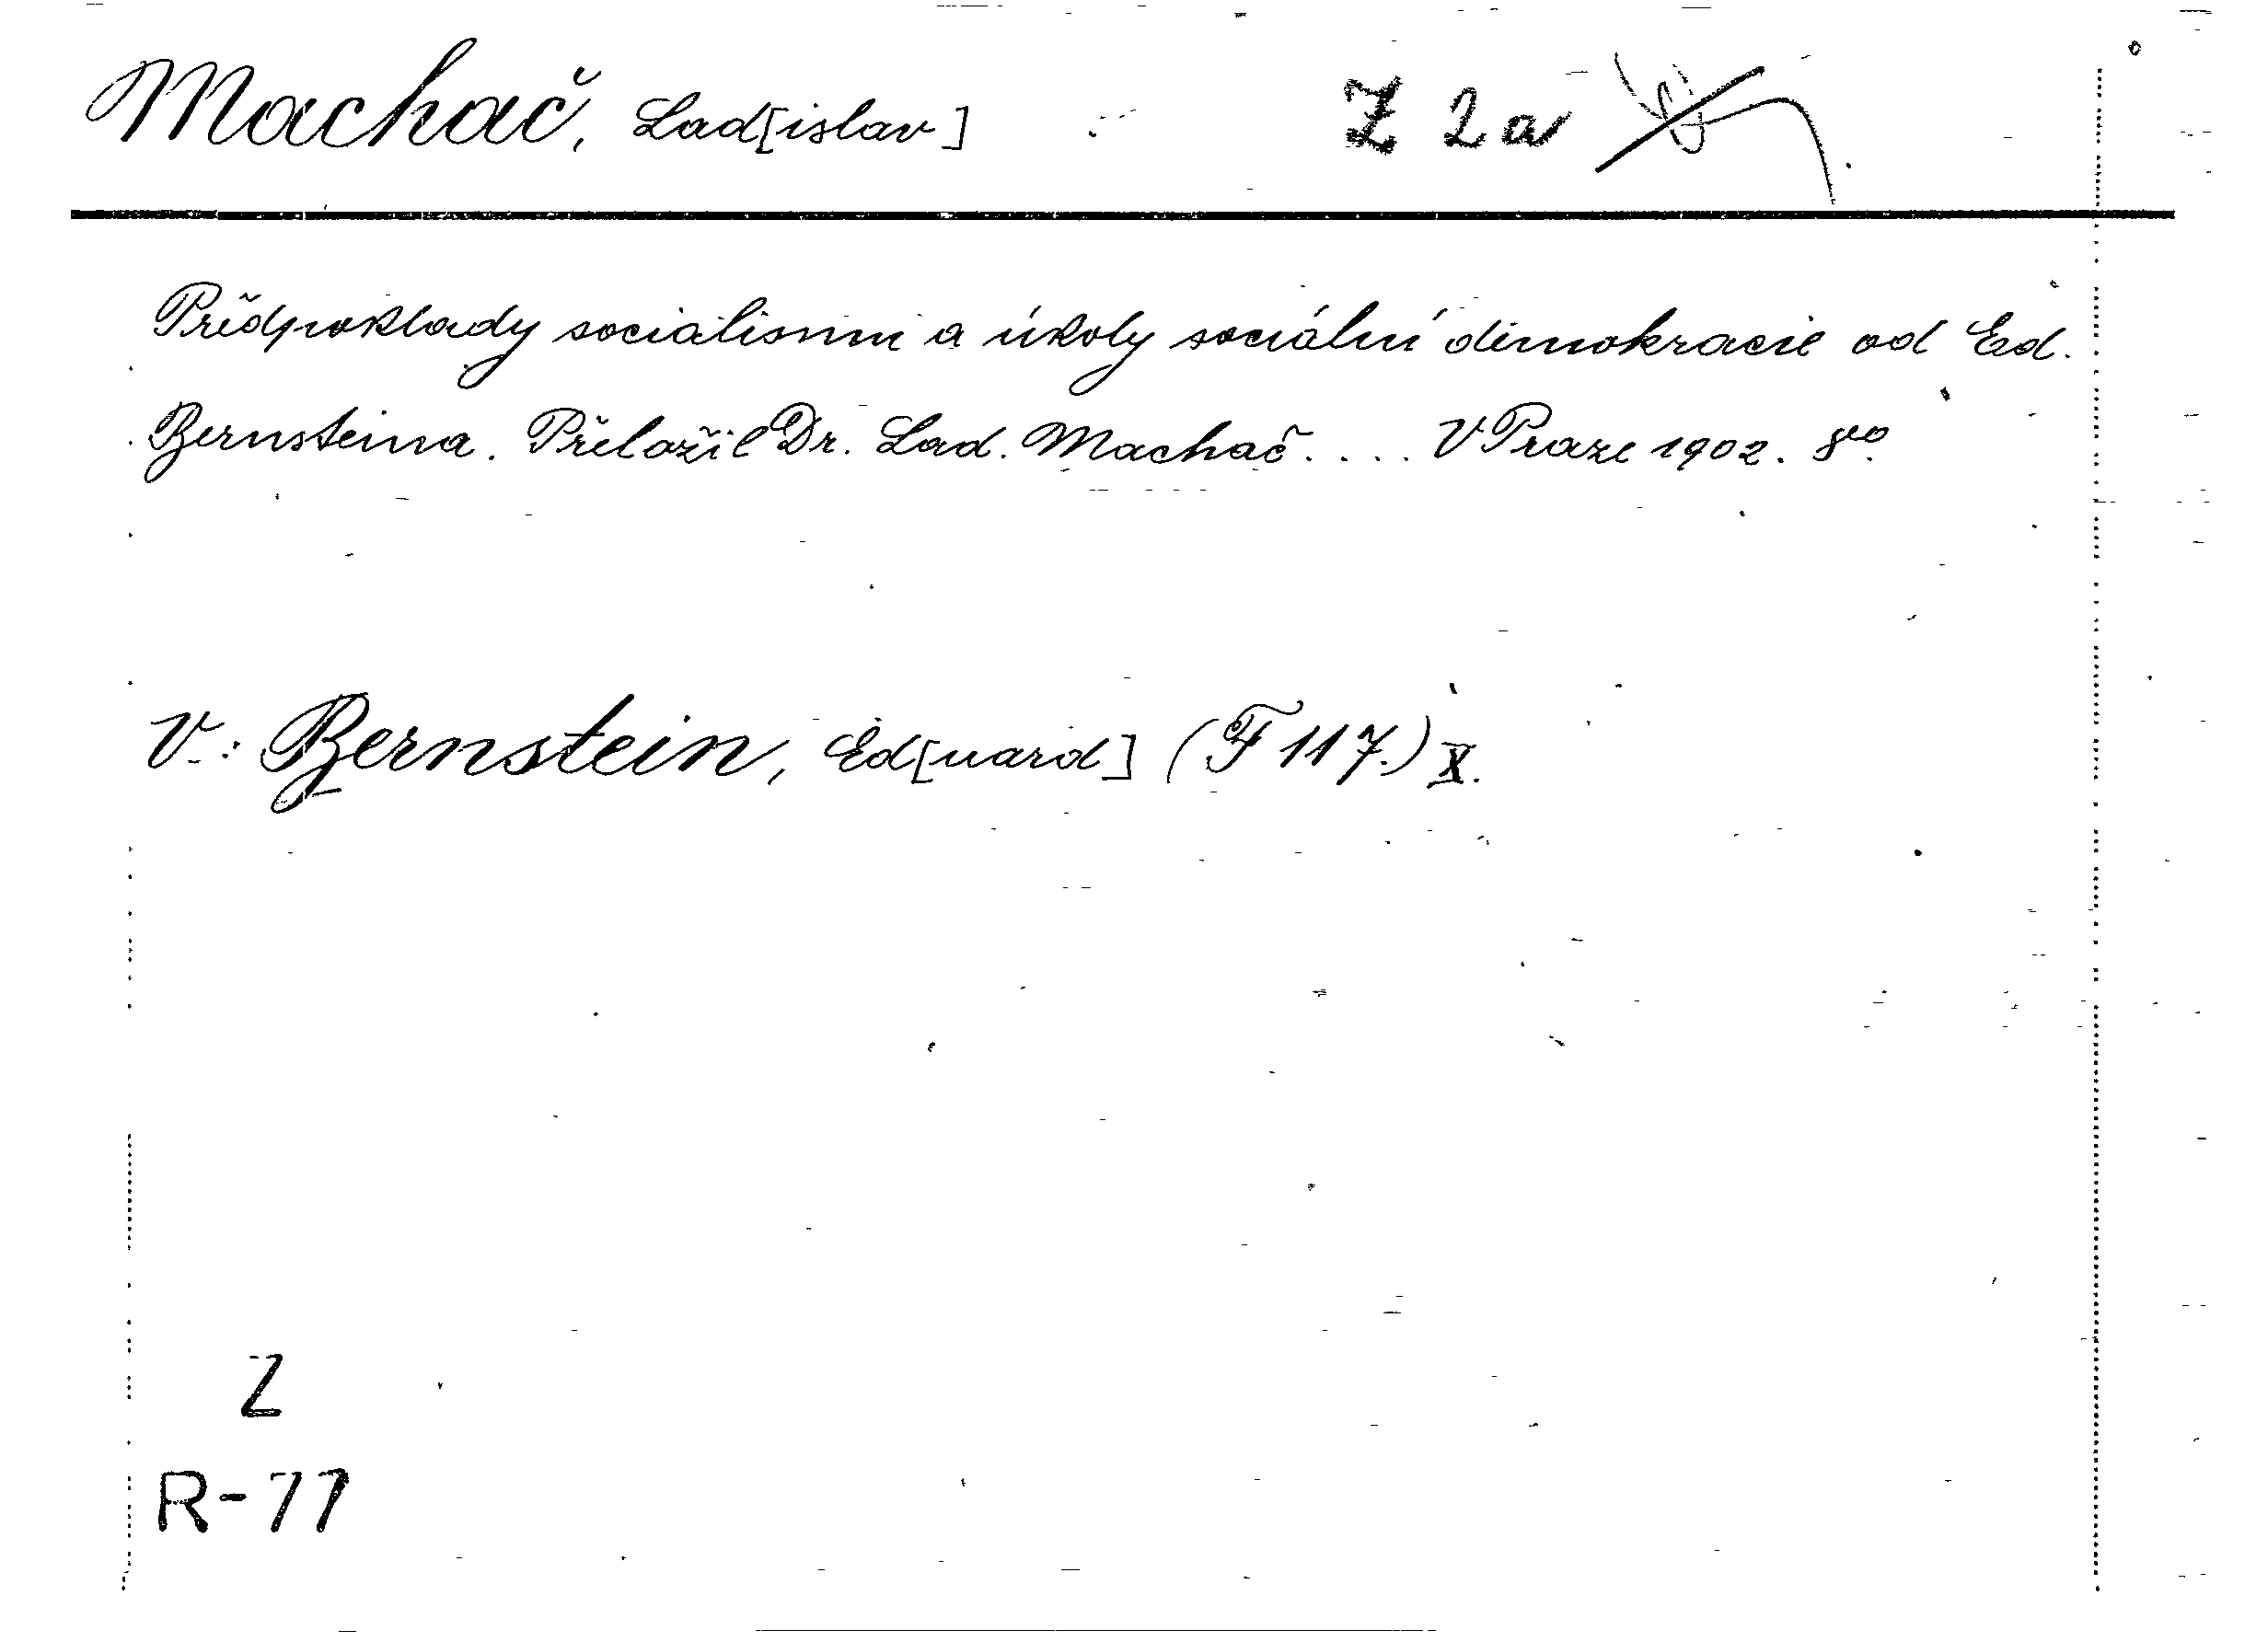 Machač, Lad[islav] Z 2a
Předpoklady socialismu a úkoly sociální demokracie od Ed.
Bernsteina. Přeložil Dr. Lad. Machač.... V Praze 1902. 8vo.
V.: Bernstein, Ed[uard] (F 117.) X.
Z
R-77